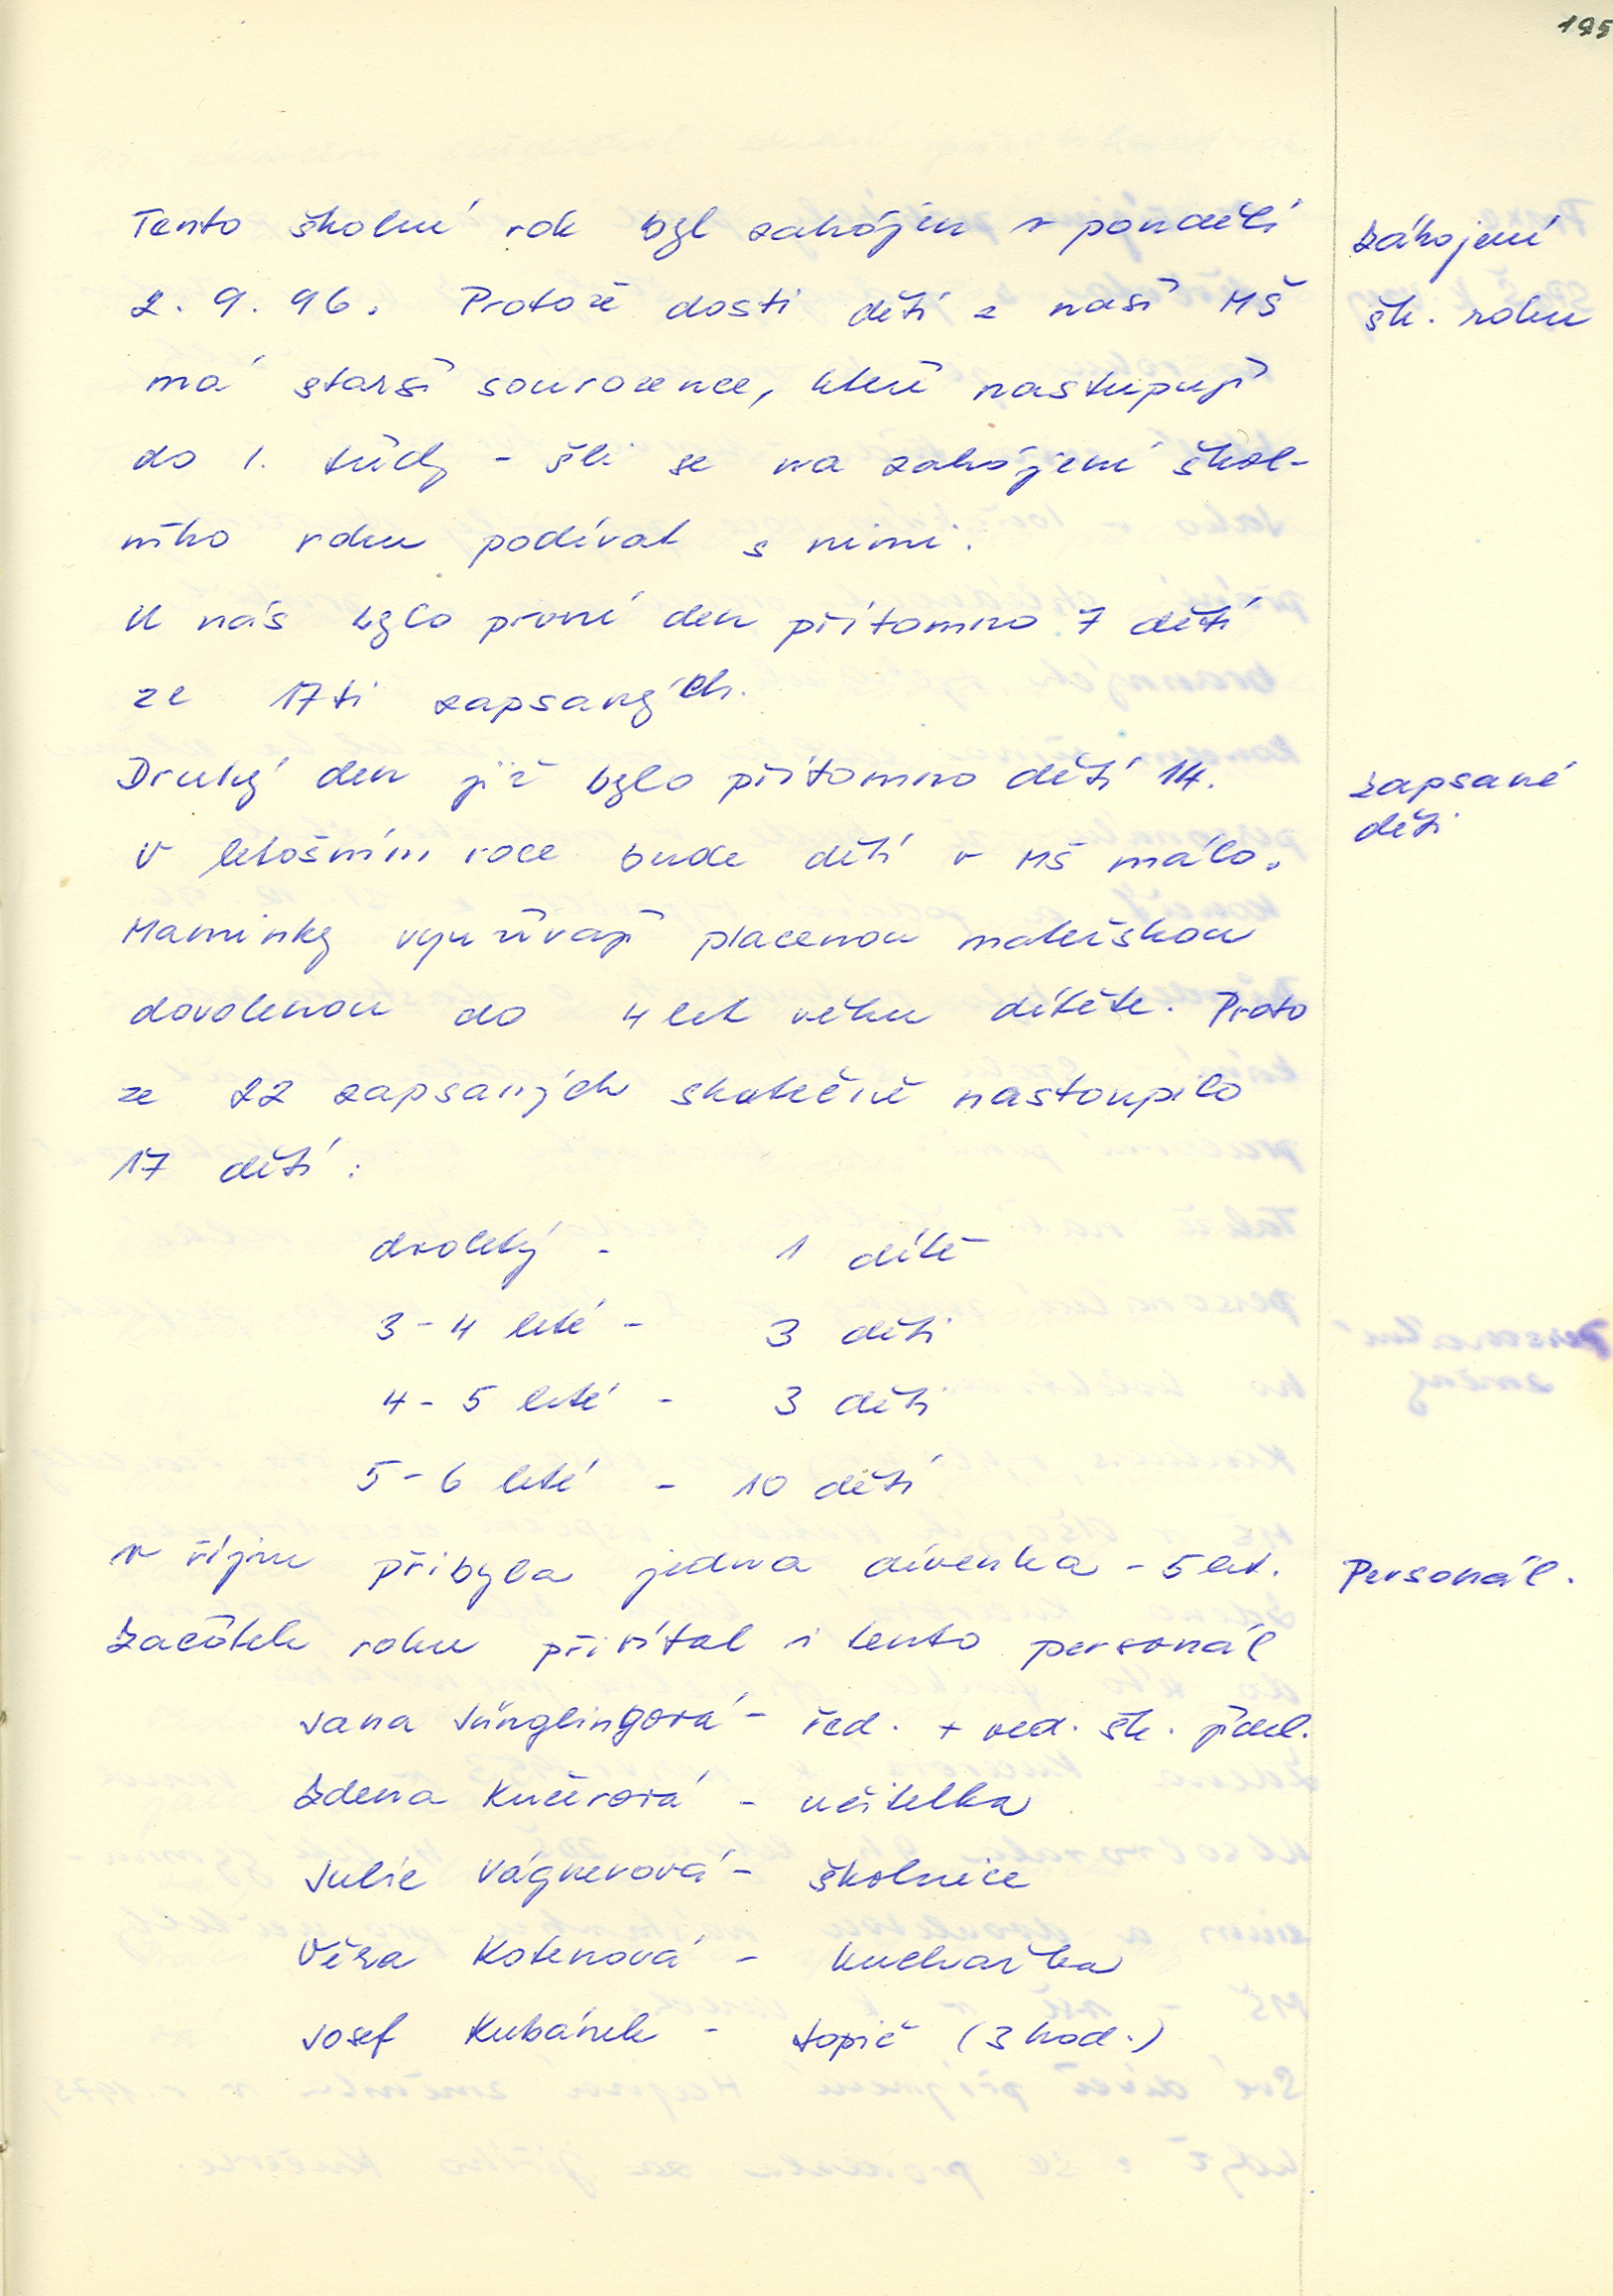 195
Tento školní rok byl zahájen v pondělí
2. 9. 96. Protože dosti dětí z naší MŠ
má starší sourozence, kteří nastupují
do 1. třídy - šli se na zahájení škol-
ního roku podívat s nimi.
U nás bylo první den přítomno 7 dětí
ze 17ti zapsaných.
Druhý den již bylo přítomno dětí 14.
V letošním roce bude dětí v MŠ málo.
Maminky využívají placenou mateřskou
dovolenou do 4 let věku dítěte. Proto
ze 22 zapsaných skutečně nastoupilo
17 dětí:
dvoletý - 1 dítě
3-4 leté - 3 děti
4-5 leté - 3 děti
5-6 leté - 10 dětí
v říjnu přibyla jedna dívenka - 5 let.
Začátek roku přivítal i tento personál
Jana Jünglingová - řed. + ved. šk. jídel.
Zdena Kučerová - učitelka
Julie Vágnerová - školnice
Věra Kotenová - kuchařka
Josef Kubánek - topič (3 hod.)
Záhojení
šk. roku
zapsané
děti
Personál.